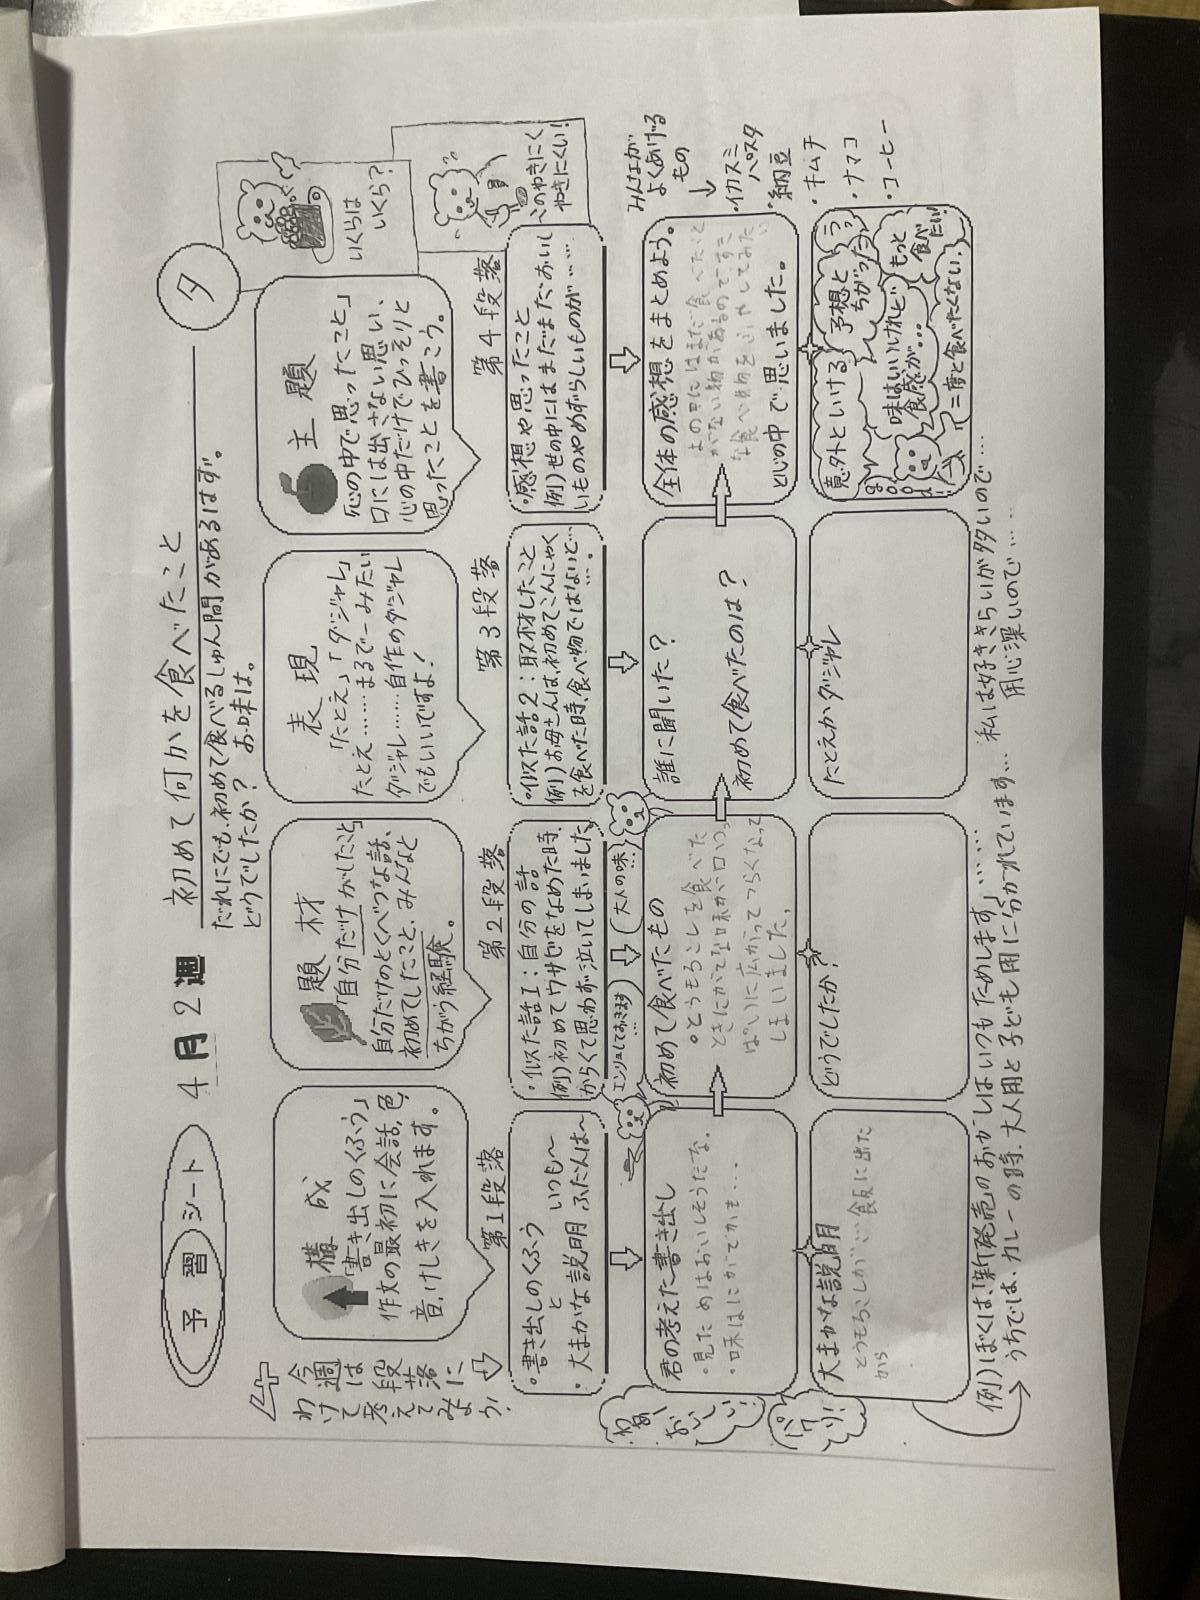 予習シート
4月2週
初めて何かを食べたこと
タ
だれにでも、初めて食べるしゅん間があるはず。
どうでしたか？ お味は。
いくらは
いくら？
このやきにく
やきにくい！
今週は段落に
わけて考えてみよう！
構成
「書き出しのくふう」
作文の最初に会話、色、
音、けしきを入れます。
題材
「自分だけがしたこと」
自分だけのとくべつな話、
初めてしたこと、みんなと
ちがう経験。
表現
「たとえ」「ダジャレ」
たとえ……まるで〜みたい
ダジャレ……自作のダジャレ
でもいいですよ！
主題
「心の中で思ったこと」
口には出さない思い、
心の中だけでひっそりと
思ったことを書こう。
第1段落
・書き出しのくふう
と いつも〜
・大まかな説明 ふだんは〜
第2段落
・似た話1：自分の話
例）初めてワサビをなめた時、
からくて思わず泣いてしまいました
第3段落
・似た話2：取材したこと
例）お母さんは、初めてこんにゃく
を食べた時、食べ物ではないと…。
第4段落
・感想や思ったこと
例）世の中にはまだまだおいし
いものやめずらしいものが……
わあー
おいしい！
パクリ！
君の考えた書き出し
・見ためはおいしそうだな。
・味はにがてかも・・・
初めて食べたもの
・とうもろこしを食べた
ときにがてな味が口いっ
ぱいに広がってつらくなって
しまいました。
(大人の味)
誰に聞いた？
初めて食べたのは？
全体の感想をまとめよう。
よの中にはまだ食べたこと
がない物があるのですき
な食べ物をふやしてみたい
と心の中で思いました。
みんなが
よくあげる
もの
・イカスミ
パスタ
・納豆
・キムチ
・ナマコ
・コーヒー
大まかな説明
とうもろこしが
飯に出た
から
どうでしたか？
たとえかダジャレ
意外といける
予想と
ちがった
味はいいけれど
食感が…
もっと
食べたい！
二度と食べたくない。
例）ぼくは、「新発売のおかしはいつもためします」……
うちでは、カレーの時、大人用と子ども用に分かれています…
私は好ききらいが多いので…
用心深いので……